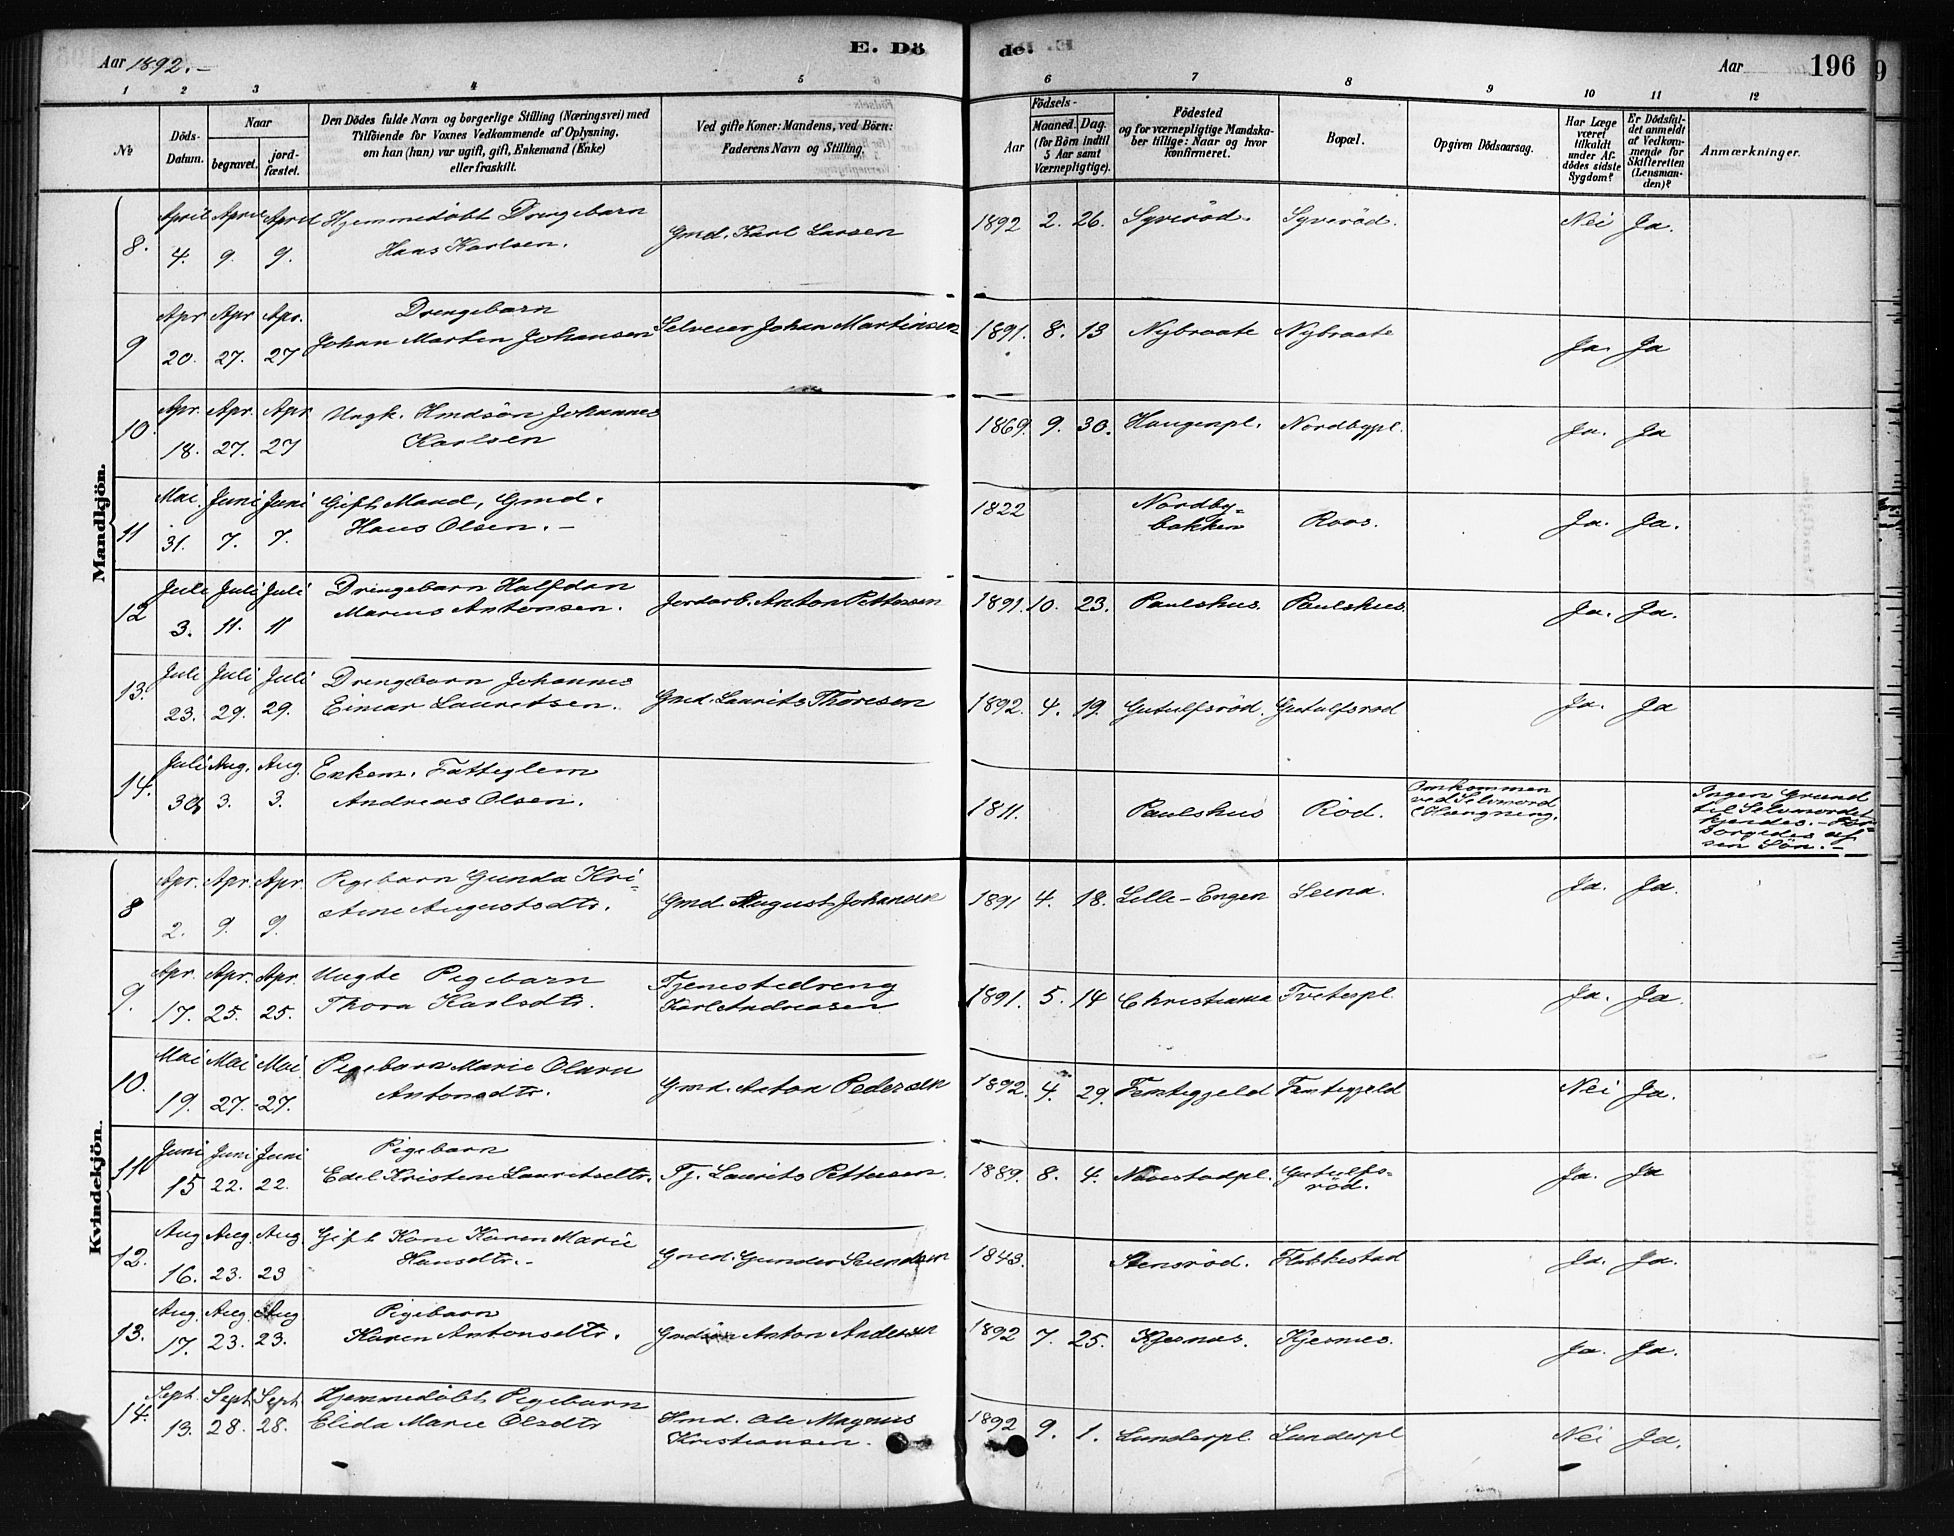 E. Döde. 196
Aar 1892.- Aar
1 2 3 4 5 6 7 8 9 10 11 12
№ Döds-Datum. Naar begravet. jordfæstet.
Den Dödes fulde Navn og borgerlige Stilling (Næringsvei) med
Tilföiende for Voxnes Vedkommende af Oplysning,
om han (hun) var ugift, gift, Enkemand (Enke)
eller fraskilt.
Ved gifte Koner: Mandens, ved Börn:
Faderens Navn og Stilling.
Födsels-
Aar Maaned. Dag.
(for Börn indtil
5 Aar samt
Værnepligtige).
Födested
og for værnepligtige Mandska-
ber tillige: Naar og hvor
konfirmeret.
Bopæl.
Opgiven Dödsaarsag.
Har Læge
været
tilkaldt
under Af-
dödes sidste
Sygdom?
Er Dödsfal-
det anmeldt
af Vedkom-
mende for
Skifteretten
(Lensman-
den)?
Anmærkninger.
Mandkjön.
8. April April April Hjemmedöbt Drengebarn Gmd. Karl Larsen 1892 2. 26. Syveröd. Syveröd. Nei Ja.
4. 9. 9. Hans Karlsen.
9 Apr Apr Apr. Drengebarn Selveier Johan Martinsen 1891. 8. 13 Nybraate Nybraate Ja. Ja
20. 27. 27 Johan Marten Johansen
10. Apr. Apr. Apr Ungk. Hmdsön Johannes 1869. 9. 30. Haugenpl. Nordbypl. Ja. Ja
18. 27. 27 Karlsen
11 Mai. Juni Juni Gift Mand, Gmd. 1822 Nordby= Roos. Ja. Ja.
31. 7. 7. Hans Olsen.- bakken
12 Juli Juli Juli Drengebarn Halfdan Jordarb. Anton Pettersen 1891. 10. 23. Paulshus. Paulshus Ja. Ja.
3. 11. 11 Marius Antonsen.
13. Juli Juli Juli Drengebarn Johannes Gmd. Laurits Thoresen 1892. 4. 19. Gutulfsröd Gutulfsröd Ja. Ja
23. 29. 29. Einar Lauritsen.
14. Juli Aug. Aug. Enkem. Fattiglem 1811. Paulshus Röd. Omkommen
30 3. 3. Andreas Olsen. ved Selvmord
(Hængning.
Ingen Grund
til Selvmordet
kjendes. - For-
sörgedes af
sin Sön.-
Kvindekjön.
8 Apr. Apr. Apr. Pigebarn Gunda Kri- Gmd. August Johansen 1891 4. 18. Lille-Engen Ja. Ja.
2. 9. 9. stine Augustsdtr.
9. Apr. Apr. Apr. Uægte Pigebarn Tjenestedreng 1891. 5. 14 Christiania Tvetespl. Ja. Ja.
17. 25. 25. Thora Karlsdtr. Karl Andreasen
10. Mai Mai Mai. Pigebarn Marie Olava Gmd. Anton Pedersen 1892. 4. 29. Nei Ja.
19. 27. 27. Antonsdtr.
11 Juni Juni Juni Pigebarn Tj. Laurits Pettersen. 1889. 8. 4. Navestadpl. Gutulfs= Ja. Ja
15 22. 22. Edel Kristine Lauritsdtr. röd.
12. Aug. Aug. Aug. Gift Kone Karen Marie Gmd. Gunder Svendsen 1843. Stensröd. Flakkestad Ja. Ja.
16. 23. 23 Hansdtr.-
13. Aug. Aug. Aug Pigebarn Gmdsön Anton Andersen 1892 7. 25. Kjernes. Kjernes. Ja. Ja.
17. 23. 23. Karen Antonsdtr.
14. Sept. Sept. Sept. Hjemmedöbt Pigebarn Hmd. Ole Magnus 1892 9. 1. Lunderpl. Lunderpl Nei Ja.
13. 28. 28. Elida Marie Olsdtr Kristiansen.